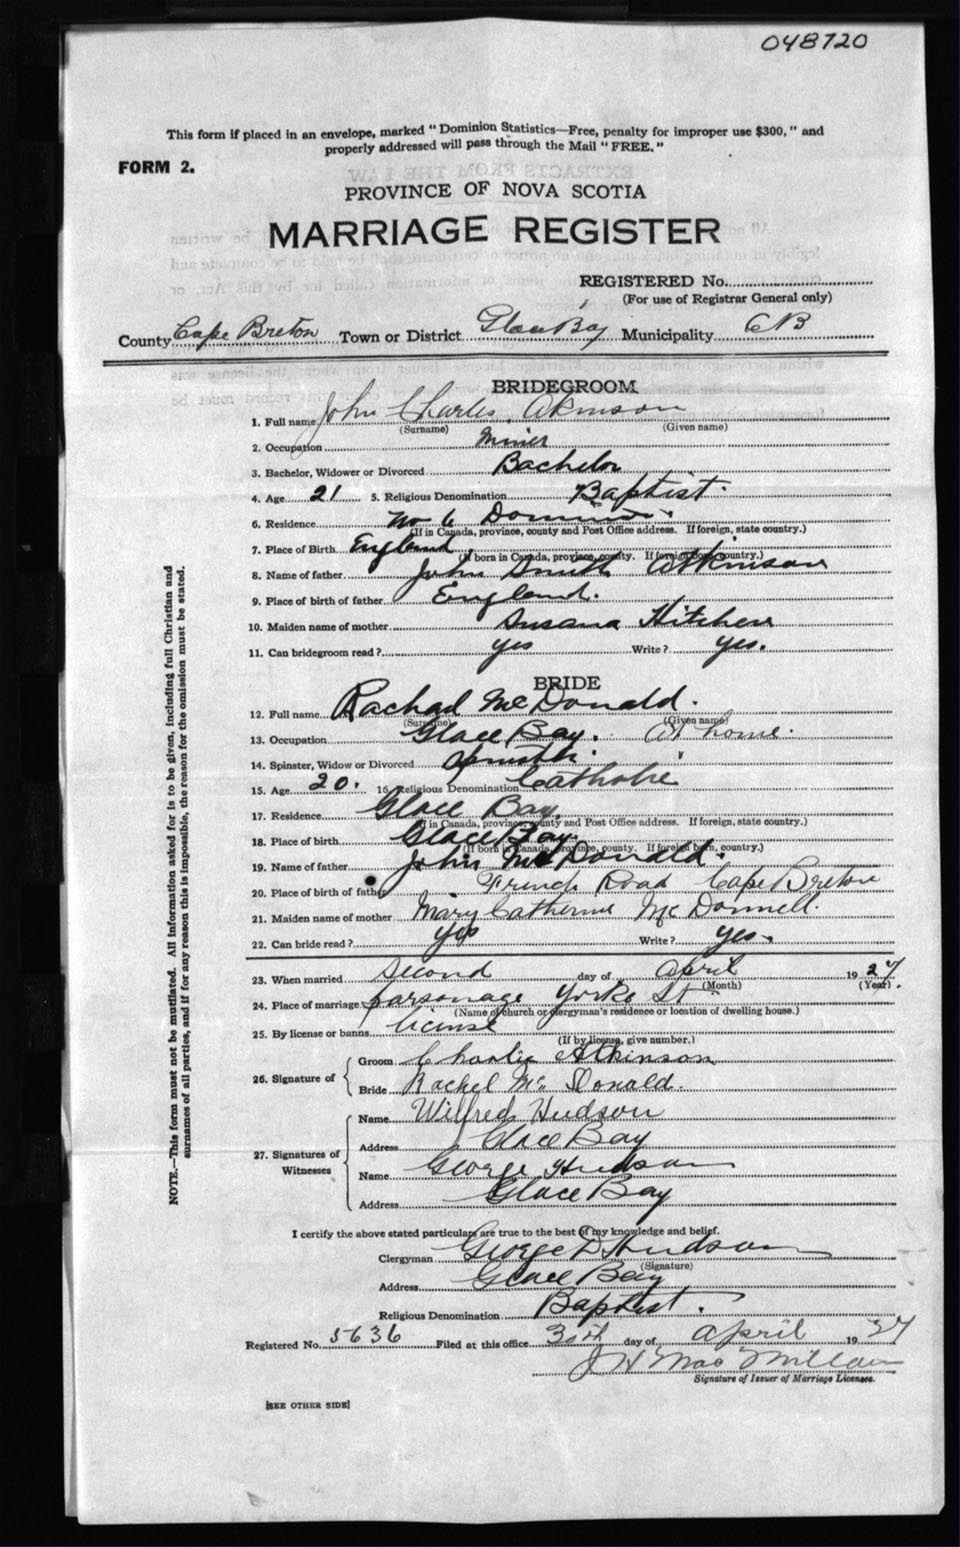 048720
This form if placed in an envelope, marked "Dominion Statistics—Free, penalty for improper use $300," and
properly addressed will pass through the Mail "FREE."
FORM 2.
PROVINCE OF NOVA SCOTIA
MARRIAGE REGISTER
REGISTERED No.
(For use of Registrar General only)
County Cape Breton Town or District Glace Bay Municipality CB
BRIDEGROOM
1. Full name John Charles Akinson
(Surname) (Given name)
2. Occupation Miner
3. Bachelor, Widower or Divorced Bachelor
4. Age 21 5. Religious Denomination Baptist.
6. Residence No 6 Dominion.
(If in Canada, province, county and Post Office address. If foreign, state country.)
7. Place of Birth England.
(If born in Canada, province, county. If foreign born, country.)
8. Name of father John Smith Atkinson
9. Place of birth of father England.
10. Maiden name of mother Susana Hitchen
11. Can bridegroom read? yes Write? yes.
BRIDE
12. Full name Rachael McDonald.
(Surname) (Given name)
13. Occupation Glace Bay. At home.
14. Spinster, Widow or Divorced
15. Age 20. 16. Religious Denomination Catholic
17. Residence Glace Bay.
(If in Canada, province, county and Post Office address. If foreign, state country.)
18. Place of birth Glace Bay.
(If born in Canada, province, county. If foreign born, country.)
19. Name of father John McDonald.
20. Place of birth of father French Road Cape Breton
21. Maiden name of mother Mary Catherine McDonnell.
22. Can bride read? yes Write? yes.
23. When married second day of April 1927.
(Month) (Year)
24. Place of marriage parsonage Yorke St
(Name of church or clergyman's residence or location of dwelling house.)
25. By license or banns license
(If by license, give number.)
26. Signature of
Groom Charlie Atkinson
Bride Rachel McDonald.
27. Signatures of Witnesses
Name Wilfred Hudson
Address Glace Bay
Name George Hudson
Address Glace Bay
I certify the above stated particulars are true to the best of my knowledge and belief.
Clergyman George D Hudson
(Signature)
Address Glace Bay
Religious Denomination Baptist.
Registered No. 5636 Filed at this office 30th day of April 1927
J H MacMillan
Signature of Issuer of Marriage Licenses.
[SEE OTHER SIDE]
NOTE.—This form must not be mutilated. All information asked for is to be given, including full Christian and
surnames of all parties, and if for any reason this is impossible, the reason for the omission must be stated.